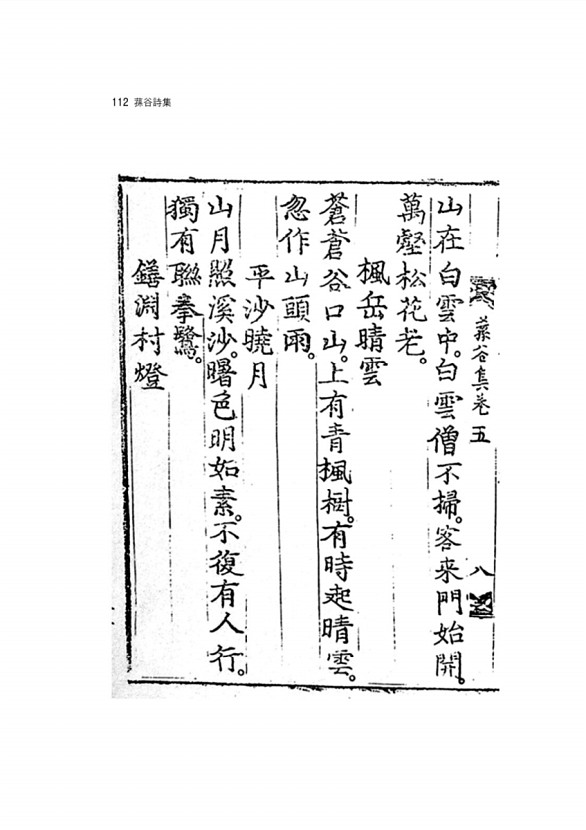 112 蓀谷詩集
蓀谷集卷五 八
山在白雲中。白雲僧不掃。客來門始開。
萬壑松花老。
楓岳晴雲
蒼蒼谷口山。上有青楓樹。有時起晴雲。
忽作山頭雨。
平沙曉月
山月照溪沙。曙色明如素。不復有人行。
獨有聯拳鷺。
鐥淵村燈